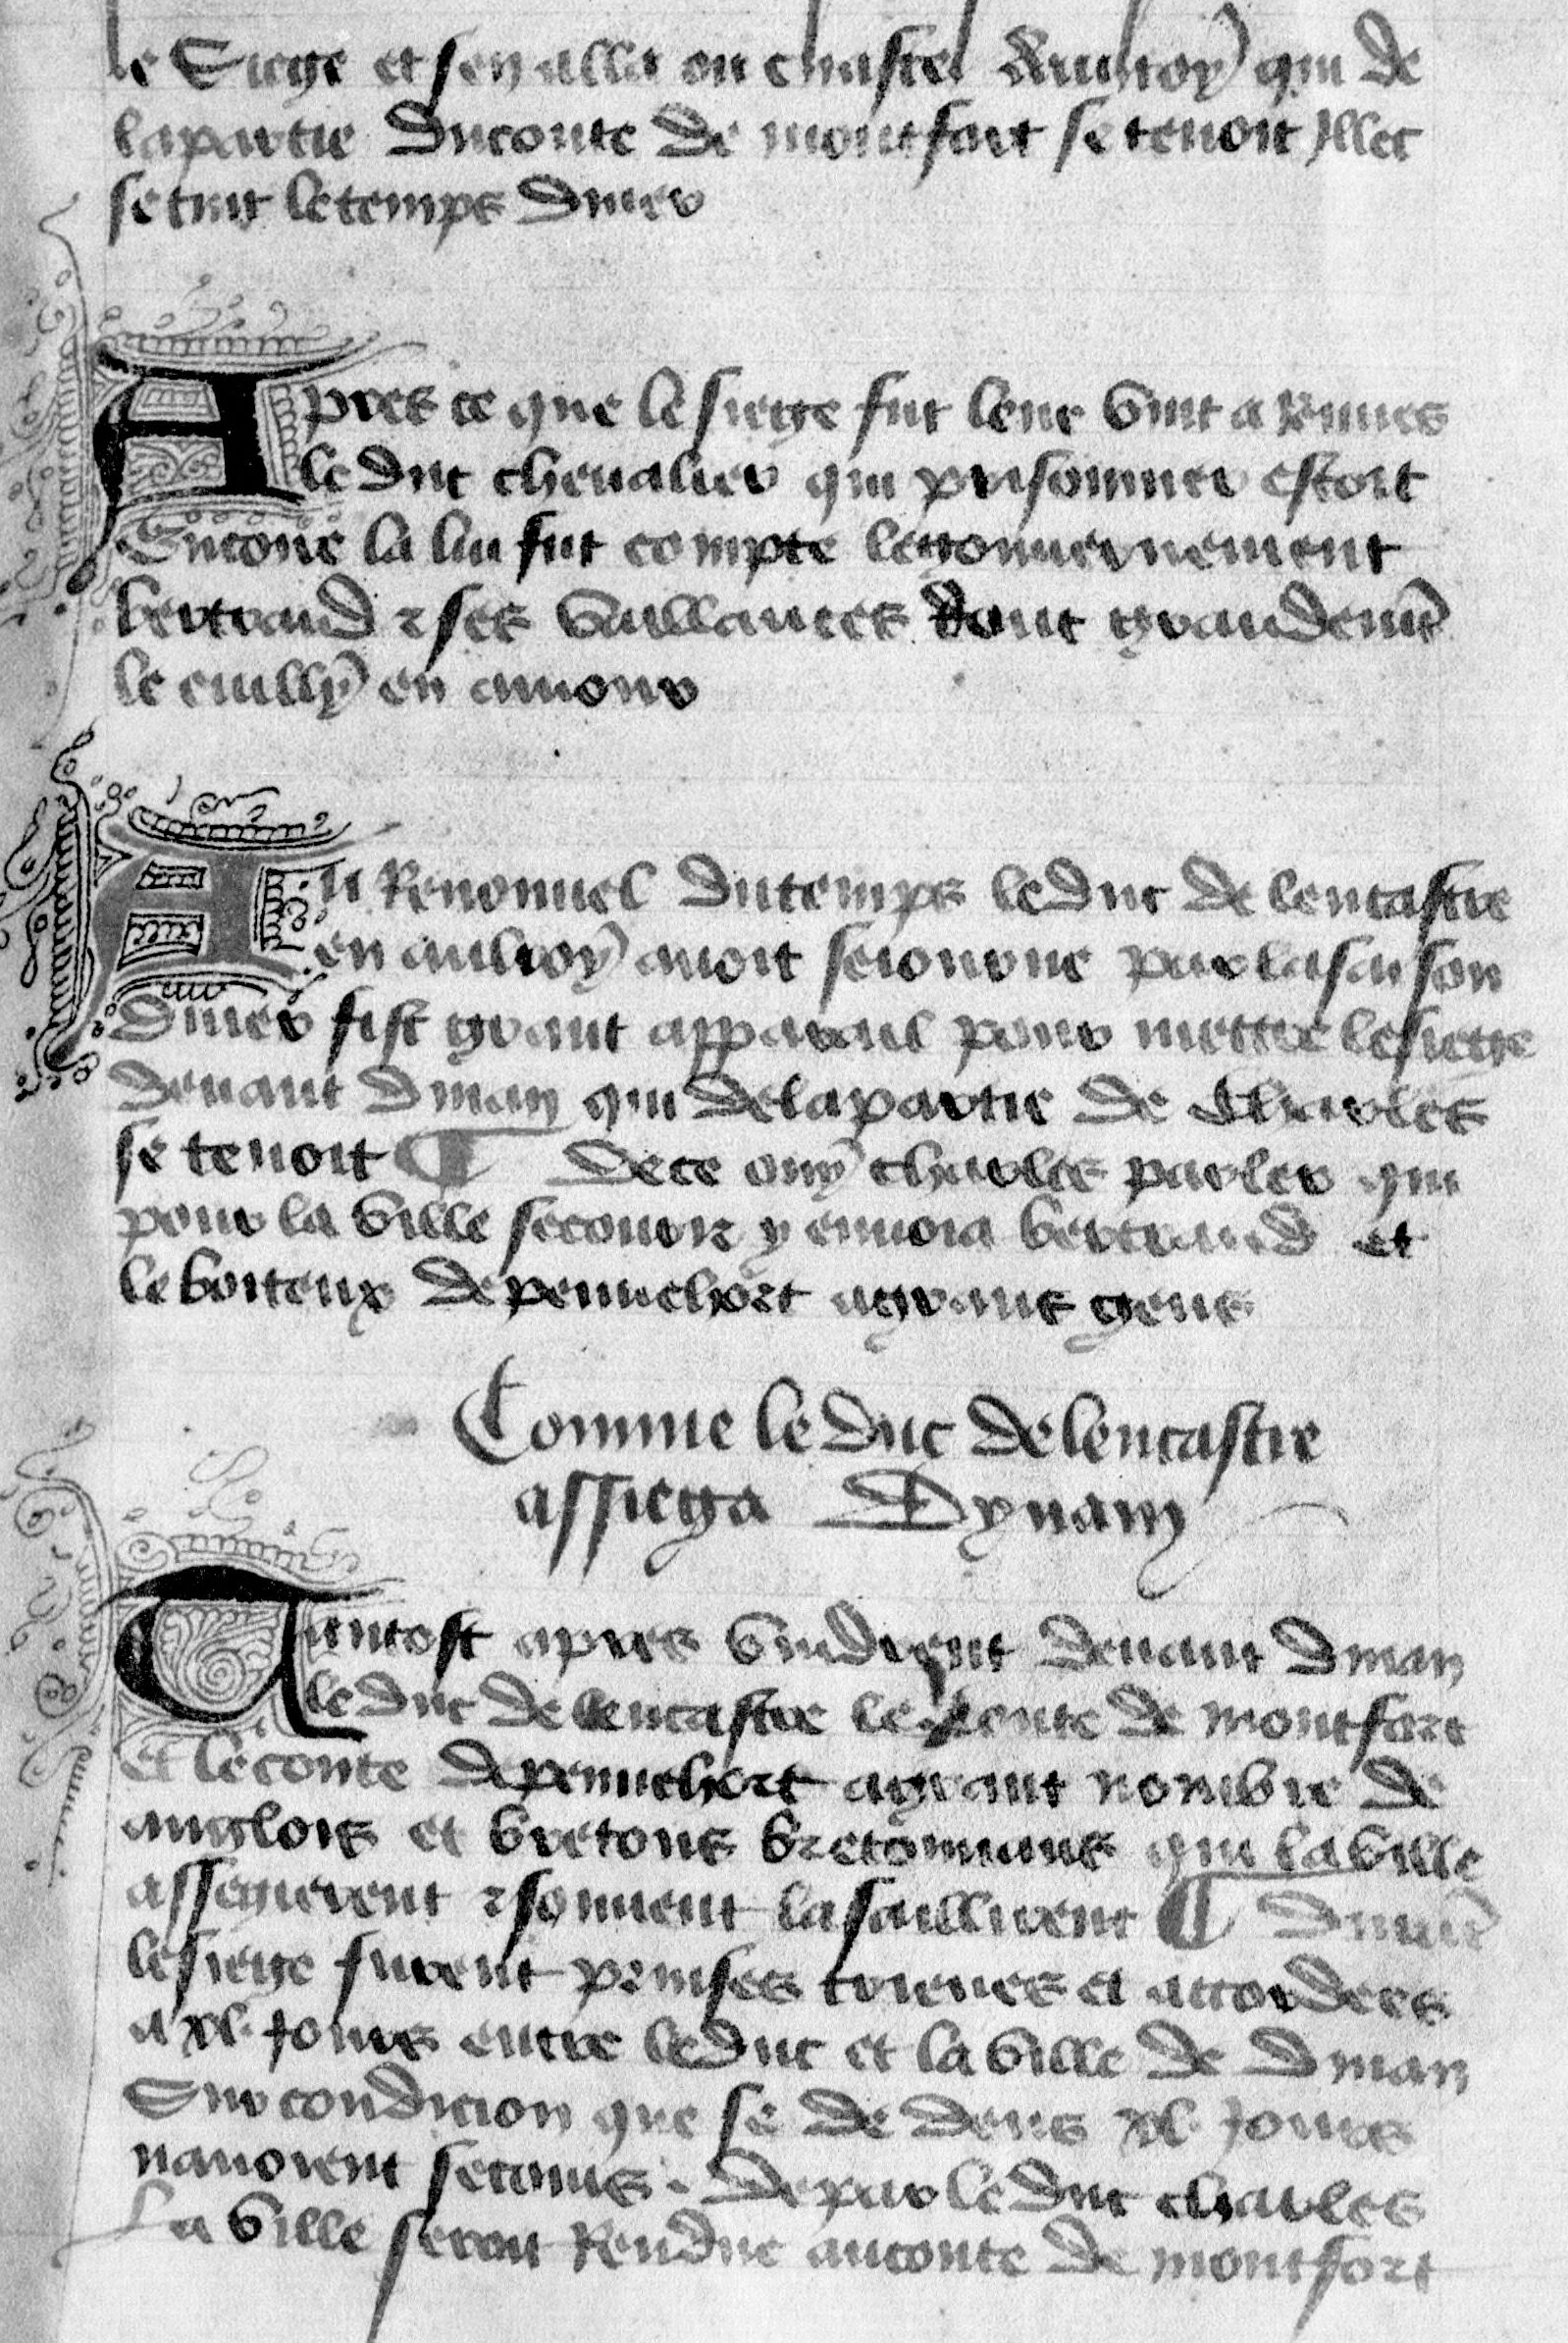 le Siege et sen alla ou chastel daulroy qui de
la partie du conte de montfort se tenoit Illec
se tint le temps diuer
Apres ce que le siege fut leue vint a Rennes
le duc cheualier qui prisonnier estoit
Encore la lui fut compte le gouuernement
bertrand et ses vaillances dont grandemt
le cuilly en amour
Au Renouuel du temps le duc de lencastre
en aulroy auoit seiourne par la saison
diuer fist grant apparail pour mettre le siege
deuant dinan qui de la partie de Charles
se tenoit ¶ De ce ouy charles parler qui
pour la ville secourir y enuoia bertrand et
le boiteux de pennehort a grans gens
Comme le duc de lencastre
assiega Dynam
Tantost apres vindrent deuant dinan
le duc de lencastre le conte de montfort
et le conte de pennehort a grant nombre de
anglois et bretons bretonnans qui la ville
assegierent et souuent lassaillirent ¶ Durāt
le siege furent prinses trieues et accordees
a xl. Jours entre le duc et la ville de dinan
Sur condicion que se de dens xl. Jours
nauoient secours. De par le duc charles
La ville seroit Rendue au conte de montfort